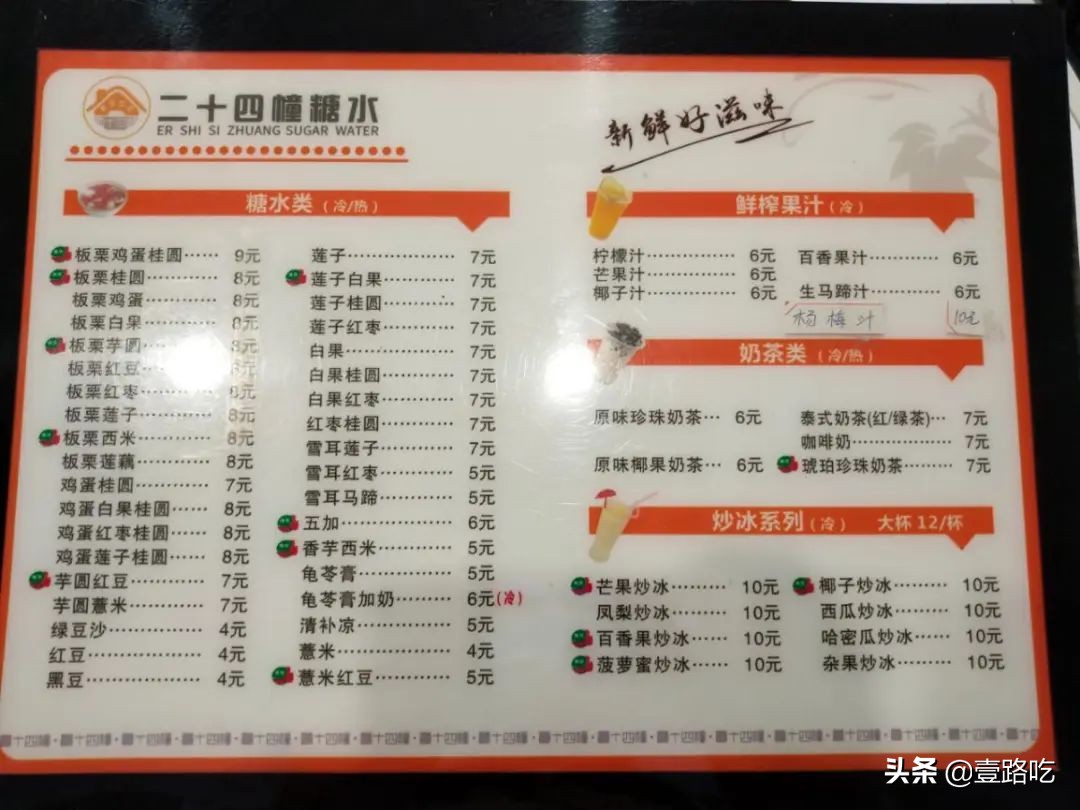 二十四幢糖水
ER SHI SI ZHUANG SUGAR WATER
新鲜好滋味
糖水类（冷/热）
板栗鸡蛋桂圆……9元
板栗桂圆……8元
板栗鸡蛋……8元
板栗白果……8元
板栗芋圆……8元
板栗红豆……8元
板栗红枣……8元
板栗莲子……8元
板栗西米……8元
板栗莲藕……8元
鸡蛋桂圆……7元
鸡蛋白果桂圆……8元
鸡蛋红枣桂圆……8元
鸡蛋莲子桂圆……8元
芋圆红豆……7元
芋圆薏米……7元
绿豆沙……4元
红豆……4元
黑豆……4元
莲子……7元
莲子白果……7元
莲子桂圆……7元
莲子红枣……7元
白果……7元
白果桂圆……7元
白果红枣……7元
红枣桂圆……7元
雪耳莲子……7元
雪耳红枣……5元
雪耳马蹄……5元
五加……6元
香芋西米……5元
龟苓膏……5元
龟苓膏加奶……6元(冷)
清补凉……5元
薏米……4元
薏米红豆……5元
鲜榨果汁（冷）
柠檬汁……6元
芒果汁……6元
椰子汁……6元
百香果汁……6元
生马蹄汁……6元
杨梅汁 10元
奶茶类（冷/热）
原味珍珠奶茶…6元
原味椰果奶茶…6元
泰式奶茶(红/绿茶)…7元
咖啡奶……7元
琥珀珍珠奶茶……7元
炒冰系列（冷） 大杯 12/杯
芒果炒冰……10元
凤梨炒冰……10元
百香果炒冰……10元
菠萝蜜炒冰……10元
椰子炒冰……10元
西瓜炒冰……10元
哈密瓜炒冰……10元
杂果炒冰……10元
头条 @壹路吃